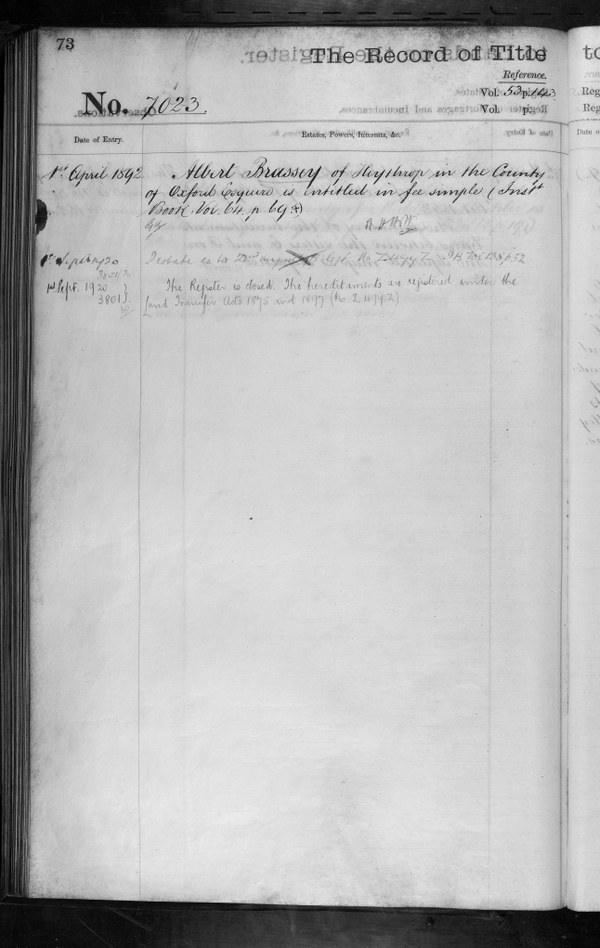 73
The Record of Title
Reference.
Vol. 53 p. 143
No. 7023.
Vol. p.
Date of Entry.
Estates, Powers, Interests, &c.
1st April 1892
Albert Brassey of Heythrop in the County
of Oxford Esquire is entitled in fee simple (Instt
Book Vol. 64 p. 69)
1st Sept 1920
Probate
1st Sept. 1920
3801
The Register is closed. The hereditaments are registered under the
Land Transfer Acts 1875 and 1897
to
Reg
Reg
Date o